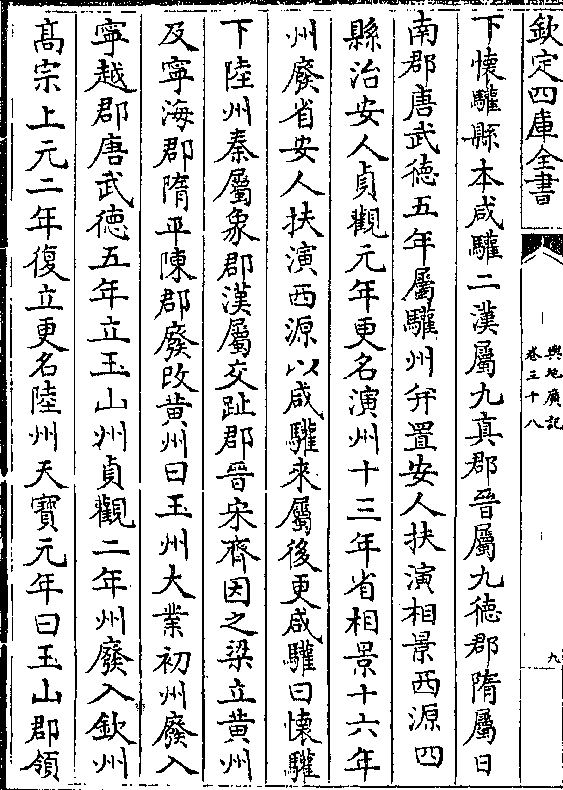 欽定四庫全書
輿地廣記
卷三十八
九
下懷驩縣本咸驩二漢屬九真郡晉屬九徳郡隋屬日
南郡唐武徳五年屬驩州幷置安人扶演相景西源四
縣治安人貞觀元年更名演州十三年省相景十六年
州廢省安人扶演西源以咸驩來屬後更咸驩曰懷驩
下陸州秦屬象郡漢屬交趾郡晉宋齊因之梁立黄州
及寧海郡隋平陳郡廢改黄州曰玉州大業初州廢入
寧越郡唐武徳五年立玉山州貞觀二年州廢入欽州
髙宗上元二年復立更名陸州天寶元年曰玉山郡領